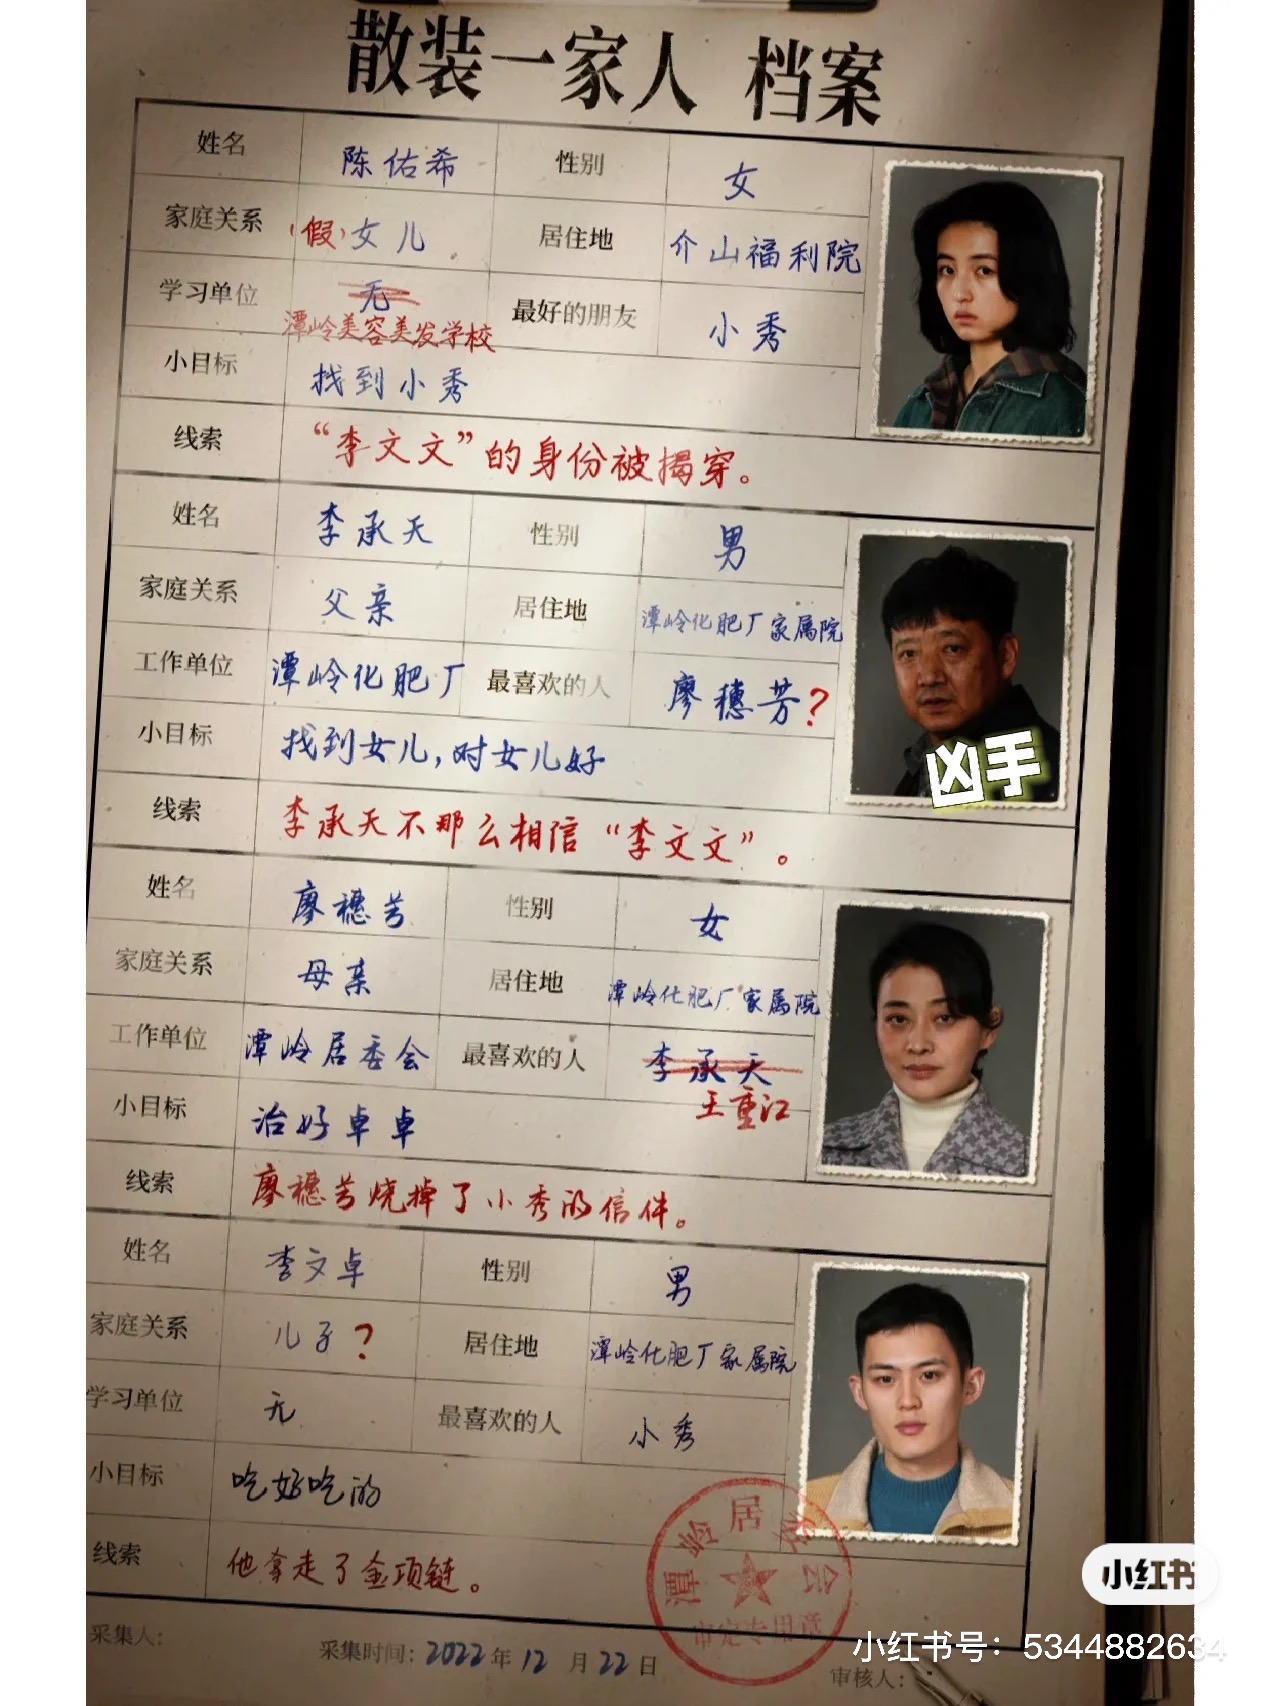 散装一家人 档案
姓名 陈佑希 性别 女
家庭关系 (假)女儿 居住地 介山福利院
学习单位 无 最好的朋友 小秀
潭岭美容美发学校
小目标 找到小秀
线索 “李文文”的身份被揭穿。
姓名 李承天 性别 男
家庭关系 父亲 居住地 潭岭化肥厂家属院
工作单位 潭岭化肥厂 最喜欢的人 廖穗芳?
小目标 找到女儿,对女儿好
凶手
线索 李承天不那么相信“李文文”。
姓名 廖穗芳 性别 女
家庭关系 母亲 居住地 潭岭化肥厂家属院
工作单位 潭岭居委会 最喜欢的人 李承天
王重江
小目标 治好卓卓
线索 廖穗芳烧掉了小秀的信件。
姓名 李文卓 性别 男
家庭关系 儿子? 居住地 潭岭化肥厂家属院
学习单位 无 最喜欢的人 小秀
小目标 吃好吃的
线索 他拿走了金项链。
潭岭居委会
审定专用章
采集人: 采集时间:2022年12月22日 审核人:
小红书
小红书号:5344882634